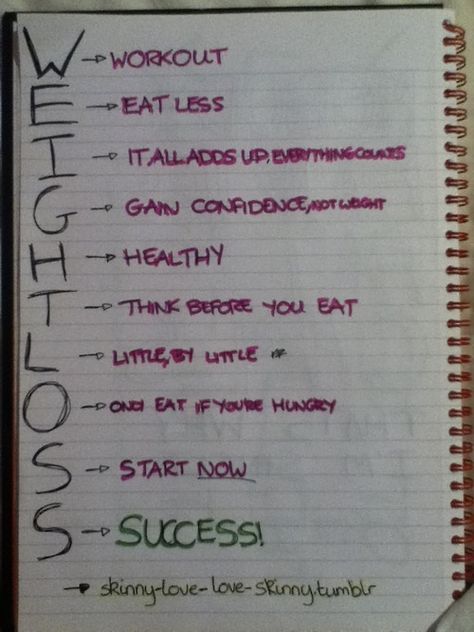 W → WORKOUT
E → EAT LESS
I → IT ALL ADDS UP, EVERYTHING COUNTS
G → GAIN CONFIDENCE, NOT WEIGHT
H → HEALTHY
T → THINK BEFORE YOU EAT
L → LITTLE, BY LITTLE
O → ONLY EAT IF YOU'RE HUNGRY
S → START NOW
S → SUCCESS!
→ skinny-love-love-skinny.tumblr